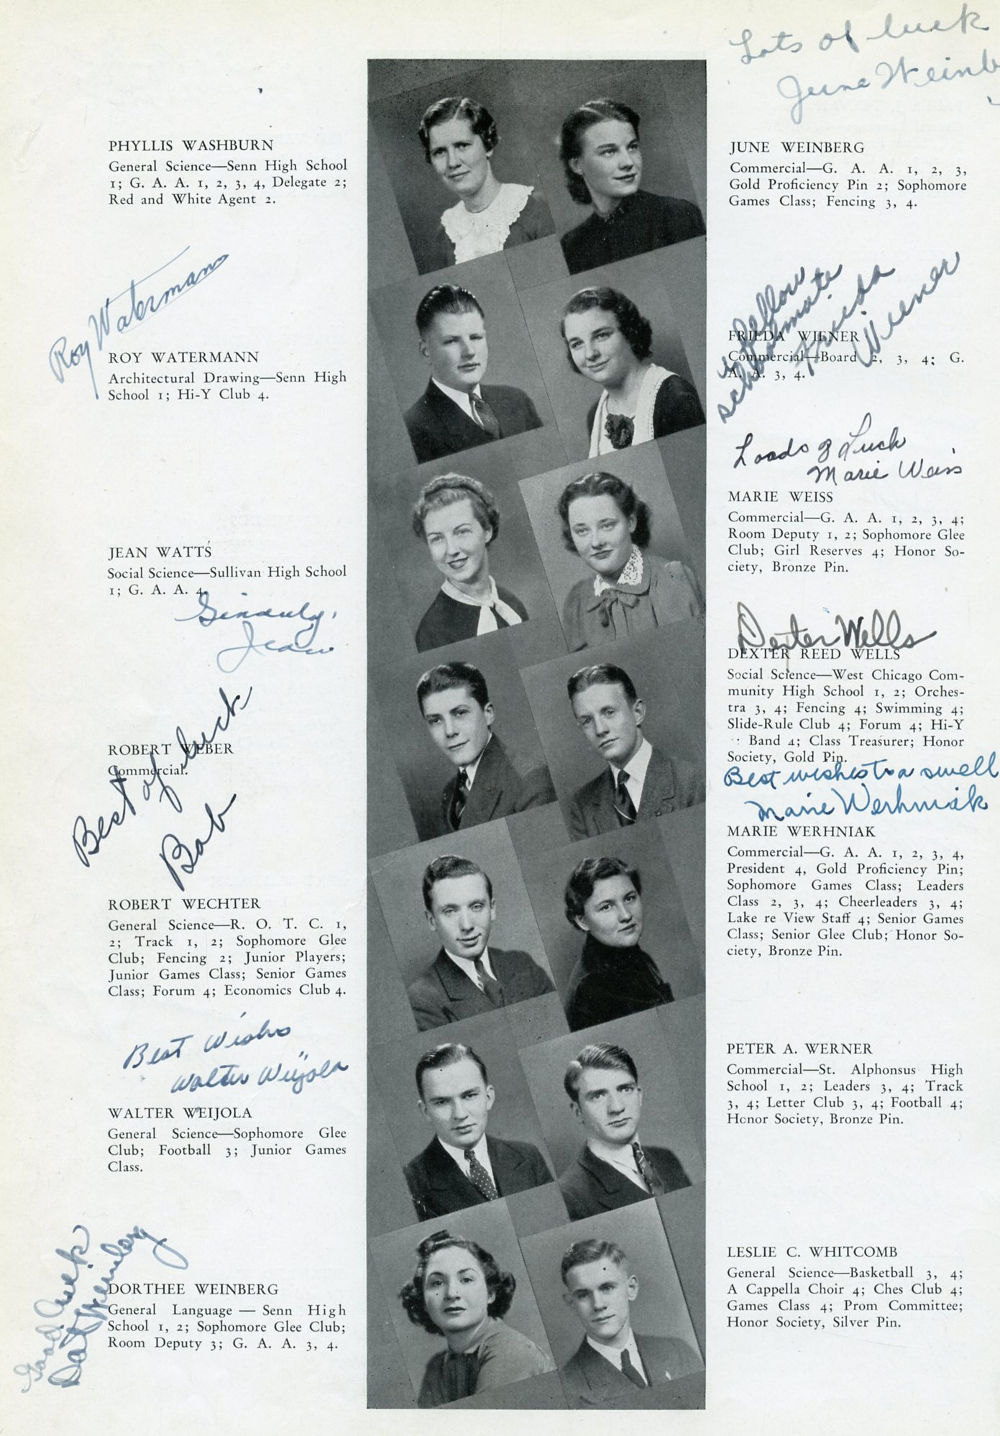 PHYLLIS WASHBURN
General Science—Senn High School
1; G. A. A. 1, 2, 3, 4, Delegate 2;
Red and White Agent 2.
Roy Watermann
ROY WATERMANN
Architectural Drawing—Senn High
School 1; Hi-Y Club 4.
JEAN WATTS
Social Science—Sullivan High School
1; G. A. A. 4.
Jean
ROBERT WEBER
Commercial.
Best of luck
Bob
ROBERT WECHTER
General Science—R. O. T. C. 1,
2; Track 1, 2; Sophomore Glee
Club; Fencing 2; Junior Players;
Junior Games Class; Senior Games
Class; Forum 4; Economics Club 4.
Best Wishes
Walter Weijola
WALTER WEIJOLA
General Science—Sophomore Glee
Club; Football 3; Junior Games
Class.
Good luck
Dot Weinberg
DORTHEE WEINBERG
General Language — Senn High
School 1, 2; Sophomore Glee Club;
Room Deputy 3; G. A. A. 3, 4.
Lots of luck
June Weinb
JUNE WEINBERG
Commercial—G. A. A. 1, 2, 3,
Gold Proficiency Pin 2; Sophomore
Games Class; Fencing 3, 4.
fellow
schoolmate
Frieda
Wiener
FRIEDA WIENER
Commercial—Board 2, 3, 4; G.
A. A. 3, 4.
Loads of Luck
Marie Weiss
MARIE WEISS
Commercial—G. A. A. 1, 2, 3, 4;
Room Deputy 1, 2; Sophomore Glee
Club; Girl Reserves 4; Honor So-
ciety, Bronze Pin.
Dexter Wells
DEXTER REED WELLS
Social Science—West Chicago Com-
munity High School 1, 2; Orches-
tra 3, 4; Fencing 4; Swimming 4;
Slide-Rule Club 4; Forum 4; Hi-Y
Band 4; Class Treasurer; Honor
Society, Gold Pin.
Best wishes to a swell
Marie Werhniak
MARIE WERHNIAK
Commercial—G. A. A. 1, 2, 3, 4,
President 4, Gold Proficiency Pin;
Sophomore Games Class; Leaders
Class 2, 3, 4; Cheerleaders 3, 4;
Lake re View Staff 4; Senior Games
Class; Senior Glee Club; Honor So-
ciety, Bronze Pin.
PETER A. WERNER
Commercial—St. Alphonsus High
School 1, 2; Leaders 3, 4; Track
3, 4; Letter Club 3, 4; Football 4;
Honor Society, Bronze Pin.
LESLIE C. WHITCOMB
General Science—Basketball 3, 4;
A Cappella Choir 4; Ches Club 4;
Games Class 4; Prom Committee;
Honor Society, Silver Pin.